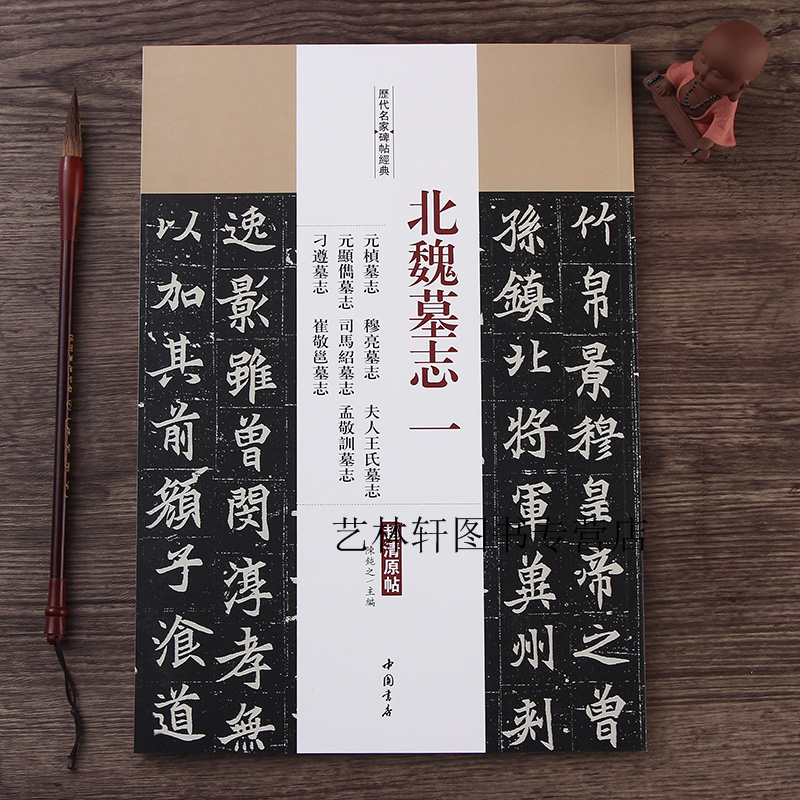 歷代名家碑帖經典
北魏墓志 一
元楨墓志 穆亮墓志 夫人王氏墓志
元顯儁墓志 司馬紹墓志 孟敬訓墓志
刁遵墓志 崔敬邕墓志
超清原帖
陳鈍之/主編
中國書店
竹帛景穆皇帝之曾
孫鎮北將軍冀州刺
逸影雖曾閔淳孝無
以加其前顏子湌道
艺林轩图书专营店